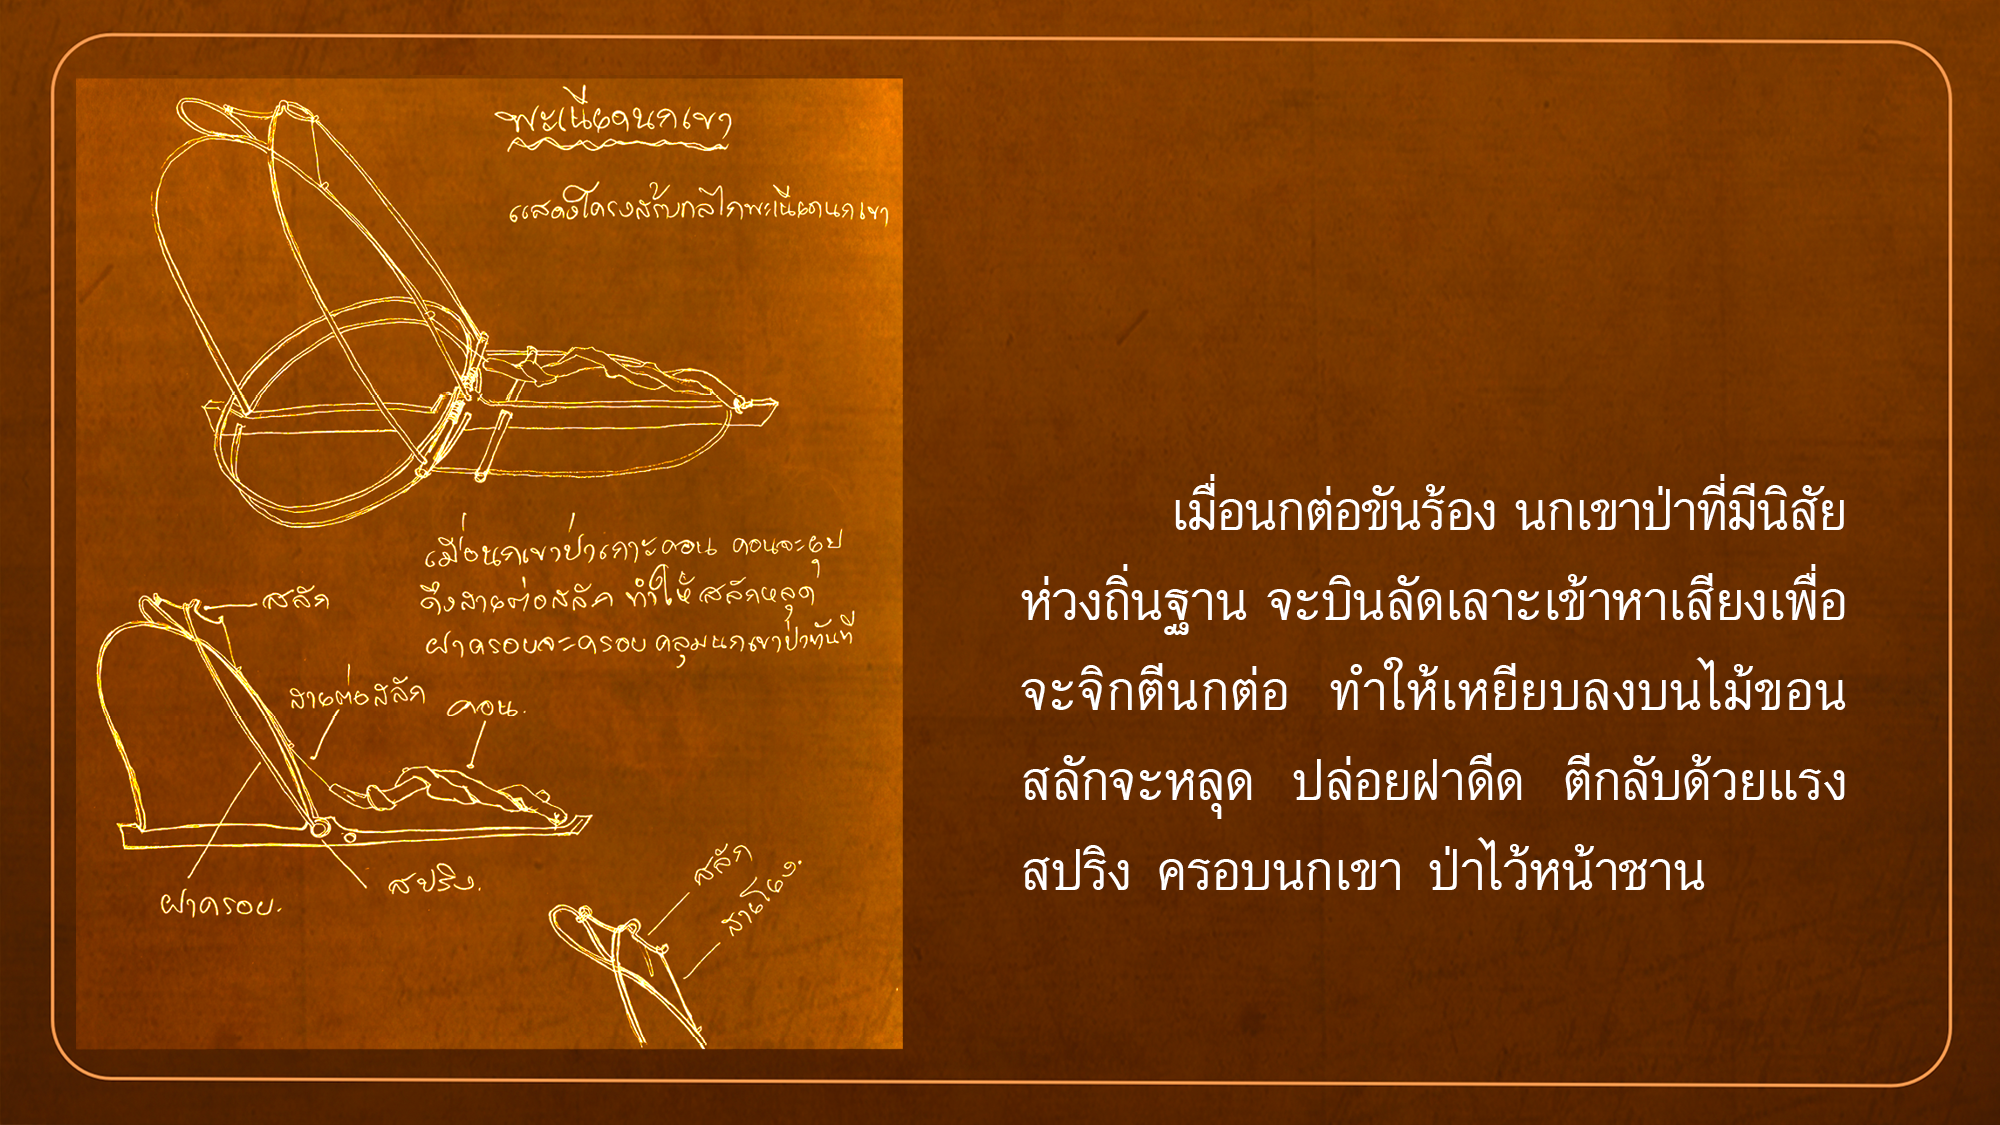 พะเนียดนกเขา
แสดงโครงสร้างกลไกพะเนียดนกเขา
เมื่อนกเขาป่าเกาะคอน คอนจะยุบ
ดึงสายต่อสลัก ทำให้สลักหลุด
ฝาครอบจะครอบคลุมนกเขาป่าทันที
สลัก
สายต่อสลัก
คอน.
ฝาครอบ.
สปริง.
สลัก
สายโยง.
เมื่อนกต่อขันร้อง นกเขาป่าที่มีนิสัย
ห่วงถิ่นฐาน จะบินลัดเลาะเข้าหาเสียงเพื่อ
จะจิกตีนกต่อ ทำให้เหยียบลงบนไม้ขอน
สลักจะหลุด ปล่อยฝาดีด ตีกลับด้วยแรง
สปริง ครอบนกเขา ป่าไว้หน้าชาน